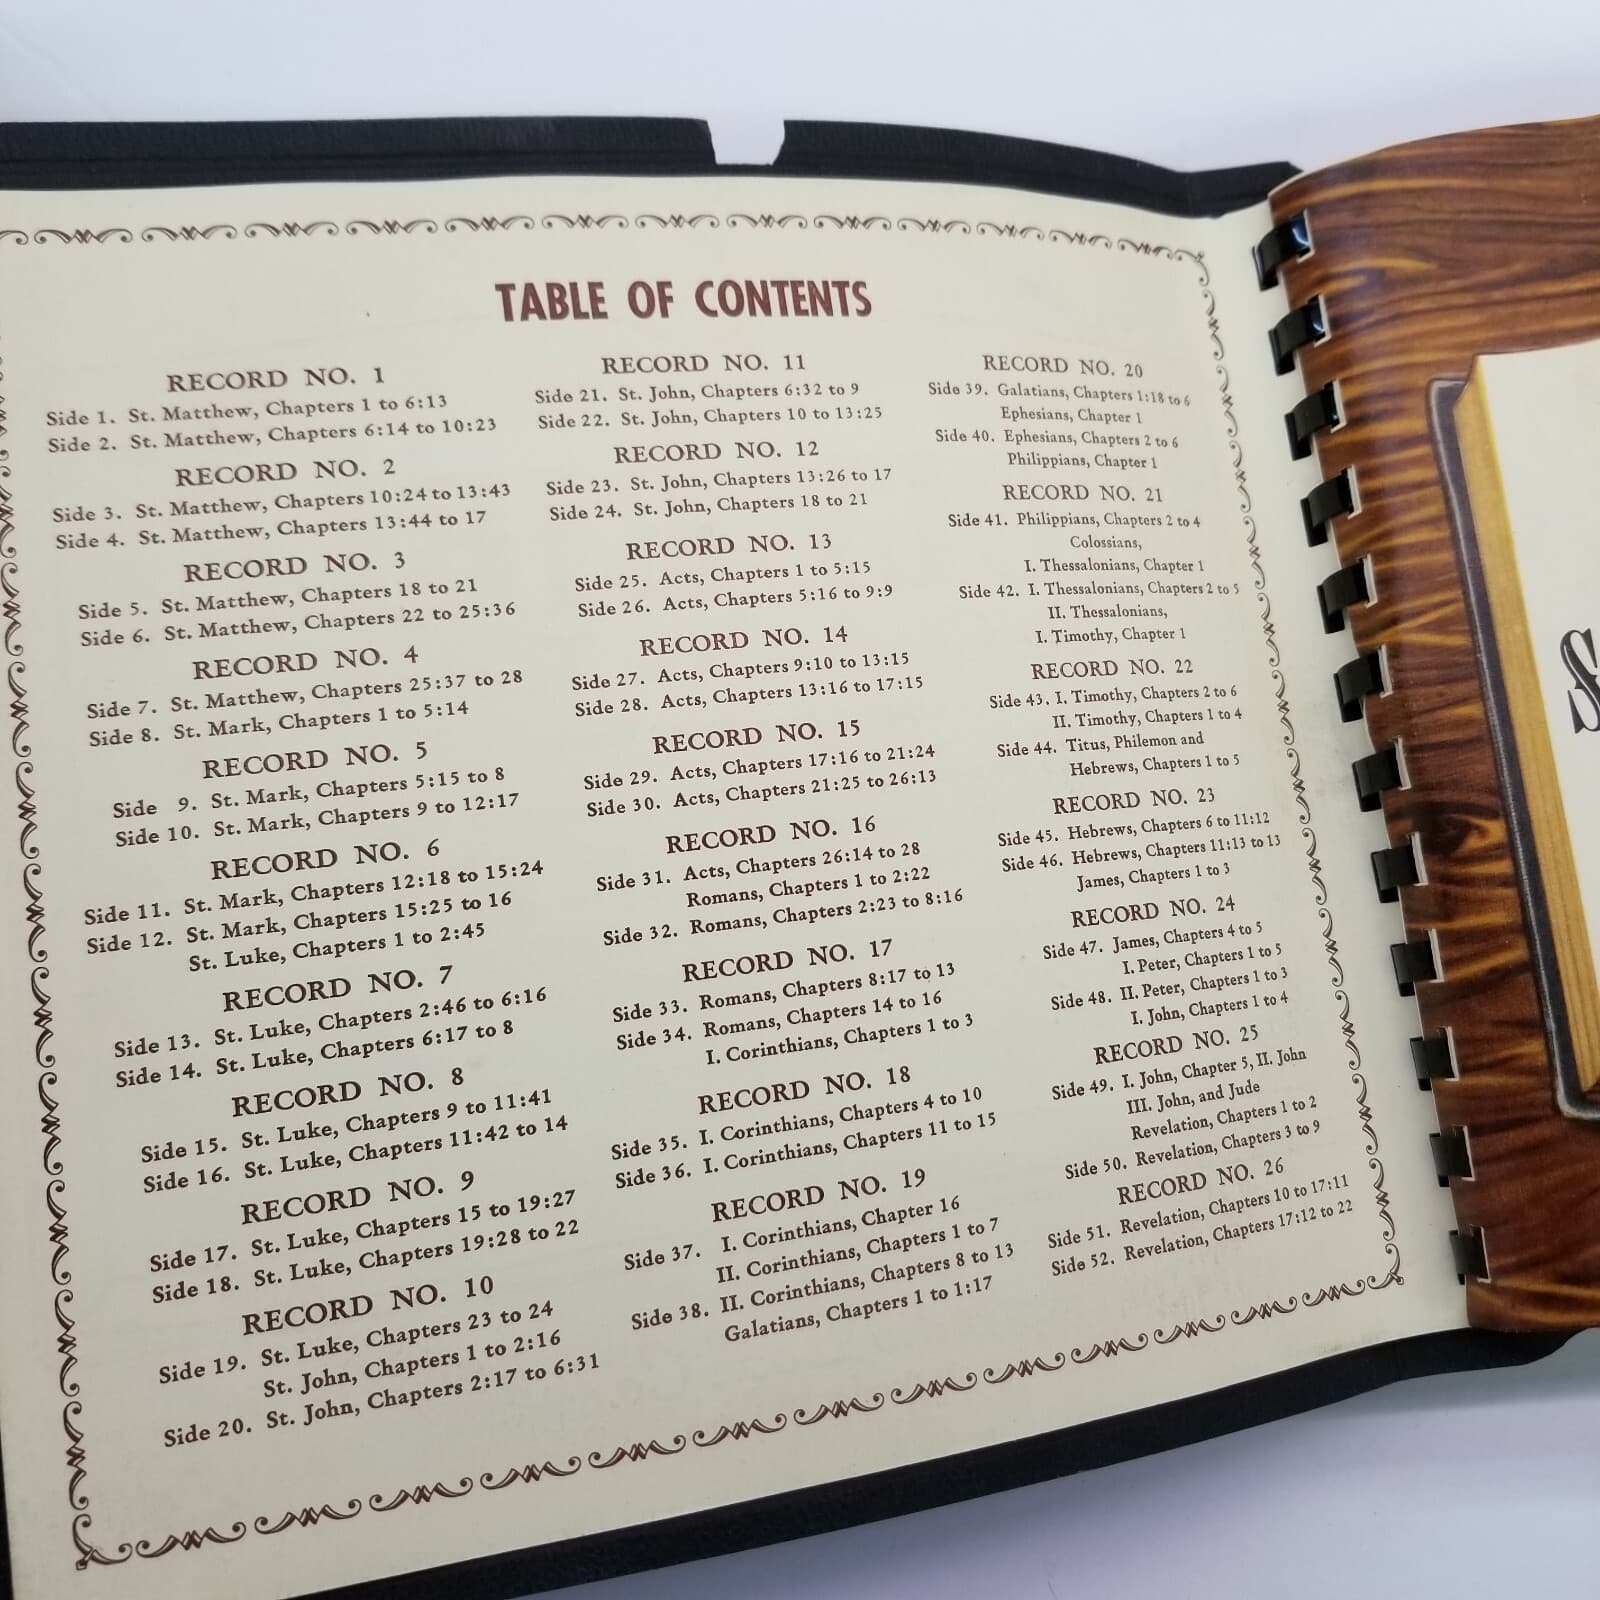 TABLE OF CONTENTS
RECORD NO. 1
Side 1. St. Matthew, Chapters 1 to 6:13
Side 2. St. Matthew, Chapters 6:14 to 10:23
RECORD NO. 2
Side 3. St. Matthew, Chapters 10:24 to 13:43
Side 4. St. Matthew, Chapters 13:44 to 17
RECORD NO. 3
Side 5. St. Matthew, Chapters 18 to 21
Side 6. St. Matthew, Chapters 22 to 25:36
RECORD NO. 4
Side 7. St. Matthew, Chapters 25:37 to 28
Side 8. St. Mark, Chapters 1 to 5:14
RECORD NO. 5
Side 9. St. Mark, Chapters 5:15 to 8
Side 10. St. Mark, Chapters 9 to 12:17
RECORD NO. 6
Side 11. St. Mark, Chapters 12:18 to 15:24
Side 12. St. Mark, Chapters 15:25 to 16
St. Luke, Chapters 1 to 2:45
RECORD NO. 7
Side 13. St. Luke, Chapters 2:46 to 6:16
Side 14. St. Luke, Chapters 6:17 to 8
RECORD NO. 8
Side 15. St. Luke, Chapters 9 to 11:41
Side 16. St. Luke, Chapters 11:42 to 14
RECORD NO. 9
Side 17. St. Luke, Chapters 15 to 19:27
Side 18. St. Luke, Chapters 19:28 to 22
RECORD NO. 10
Side 19. St. Luke, Chapters 23 to 24
St. John, Chapters 1 to 2:16
Side 20. St. John, Chapters 2:17 to 6:31
RECORD NO. 11
Side 21. St. John, Chapters 6:32 to 9
Side 22. St. John, Chapters 10 to 13:25
RECORD NO. 12
Side 23. St. John, Chapters 13:26 to 17
Side 24. St. John, Chapters 18 to 21
RECORD NO. 13
Side 25. Acts, Chapters 1 to 5:15
Side 26. Acts, Chapters 5:16 to 9:9
RECORD NO. 14
Side 27. Acts, Chapters 9:10 to 13:15
Side 28. Acts, Chapters 13:16 to 17:15
RECORD NO. 15
Side 29. Acts, Chapters 17:16 to 21:24
Side 30. Acts, Chapters 21:25 to 26:13
RECORD NO. 16
Side 31. Acts, Chapters 26:14 to 28
Romans, Chapters 1 to 2:22
Side 32. Romans, Chapters 2:23 to 8:16
RECORD NO. 17
Side 33. Romans, Chapters 8:17 to 13
Side 34. Romans, Chapters 14 to 16
I. Corinthians, Chapters 1 to 3
RECORD NO. 18
Side 35. I. Corinthians, Chapters 4 to 10
Side 36. I. Corinthians, Chapters 11 to 15
RECORD NO. 19
Side 37. I. Corinthians, Chapter 16
II. Corinthians, Chapters 1 to 7
Side 38. II. Corinthians, Chapters 8 to 13
Galatians, Chapters 1 to 1:17
RECORD NO. 20
Side 39. Galatians, Chapters 1:18 to 6
Ephesians, Chapter 1
Side 40. Ephesians, Chapters 2 to 6
Philippians, Chapter 1
RECORD NO. 21
Side 41. Philippians, Chapters 2 to 4
Colossians,
I. Thessalonians, Chapter 1
Side 42. I. Thessalonians, Chapters 2 to 5
II. Thessalonians,
I. Timothy, Chapter 1
RECORD NO. 22
Side 43. I. Timothy, Chapters 2 to 6
II. Timothy, Chapters 1 to 4
Side 44. Titus, Philemon and
Hebrews, Chapters 1 to 5
RECORD NO. 23
Side 45. Hebrews, Chapters 6 to 11:12
Side 46. Hebrews, Chapters 11:13 to 13
James, Chapters 1 to 3
RECORD NO. 24
Side 47. James, Chapters 4 to 5
I. Peter, Chapters 1 to 5
Side 48. II. Peter, Chapters 1 to 3
I. John, Chapters 1 to 4
RECORD NO. 25
Side 49. I. John, Chapter 5, II. John
III. John, and Jude
Revelation, Chapters 1 to 2
Side 50. Revelation, Chapters 3 to 9
RECORD NO. 26
Side 51. Revelation, Chapters 10 to 17:11
Side 52. Revelation, Chapters 17:12 to 22